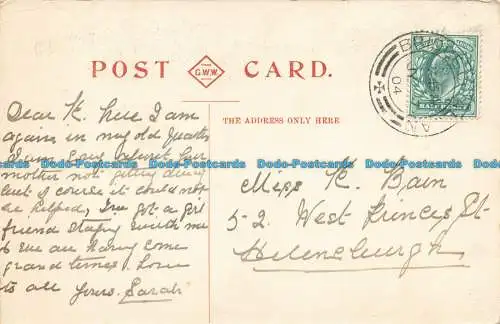 POST CARD.
G.W.W.
THE ADDRESS ONLY HERE
BRI
04
HALFPENNY
Dear K. here I am
again in my old quarters
mother not getting away
but of course it could not
be helped, I've got a girl
friend staying with me
& we are having some
grand times. Love
to all
yours. Sarah
Miss K. Bain
52. West Princes St
Helensburgh
Dodo-Postcards Dodo-Postcards Dodo-Postcards Dodo-Postcards Dodo-Postcards